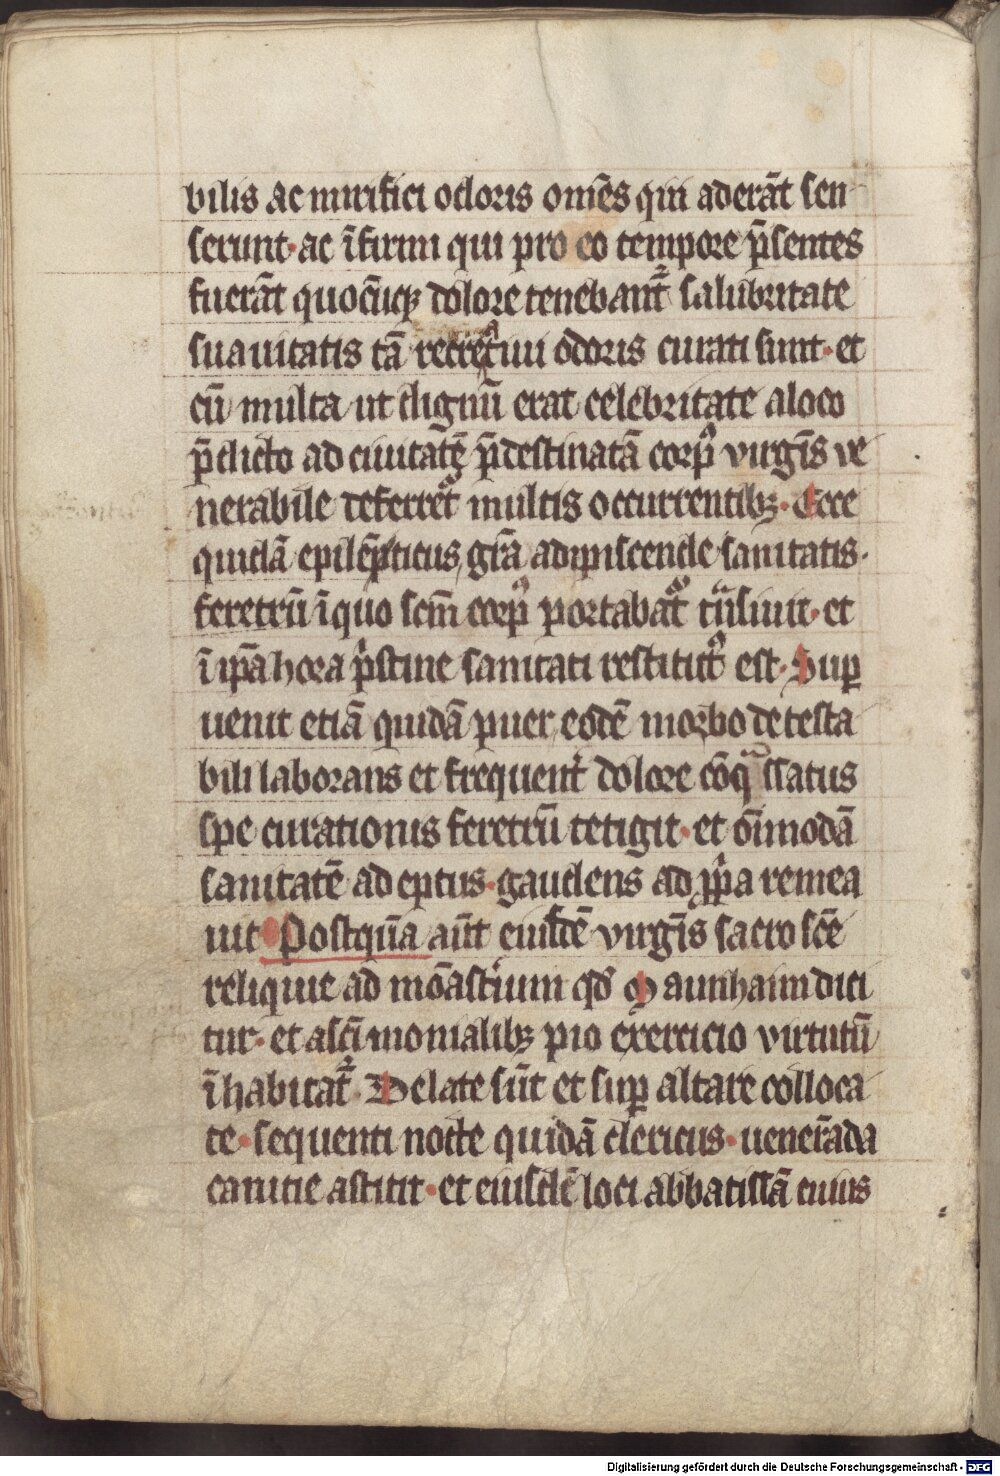 bilis ac mirifici odoris om̄es qui aderāt sen
serunt· ac īfirmi qui pro eo tempore p̄sentes
fuerāt quocūq; dolore tenebant᷑ salubritate
suauitatis tā recreatiui odoris curati sunt· et
cū multa ut dignū erat celebritate a loco
p̄dicto ad ciuitatē p̄destinatā corpꝰ virgīs ve
nerabile deferret᷑ multis occurrentibꝫ· Ecce
quidā epilēpticus grā adipiscende sanitatis·
feretrū ī quo scm̄ corpꝰ portabat᷑ tͥsiuit· et
ī ip̄a hora pͥstine sanitati restitutꝰ est· Suꝑ
uenit etiā quidā puer eodē morbo detesta
bili laborans et frequent᷑ dolore cōqͣssatus
spe curationis feretrū tetigit· et ōimodā
sanitatē adeptus· gaudens ad ꝓpͥa remea
uit Postquā aūt eiusdē virgīs sacrosc̄e
reliquie ad mōastͥium qd̄ Maunhaim dici
tur· et a sc̄imonialibꝫ pio exercicio virtutū
īhabitat᷑· Delate sūt et suꝑ altare colloca
te· sequenti nocte quidā clericus· uenerāda
canitie astitit· et eiusdē loci abbatissā cuius
Digitalisierung gefördert durch die Deutsche Forschungsgemeinschaft - DFG